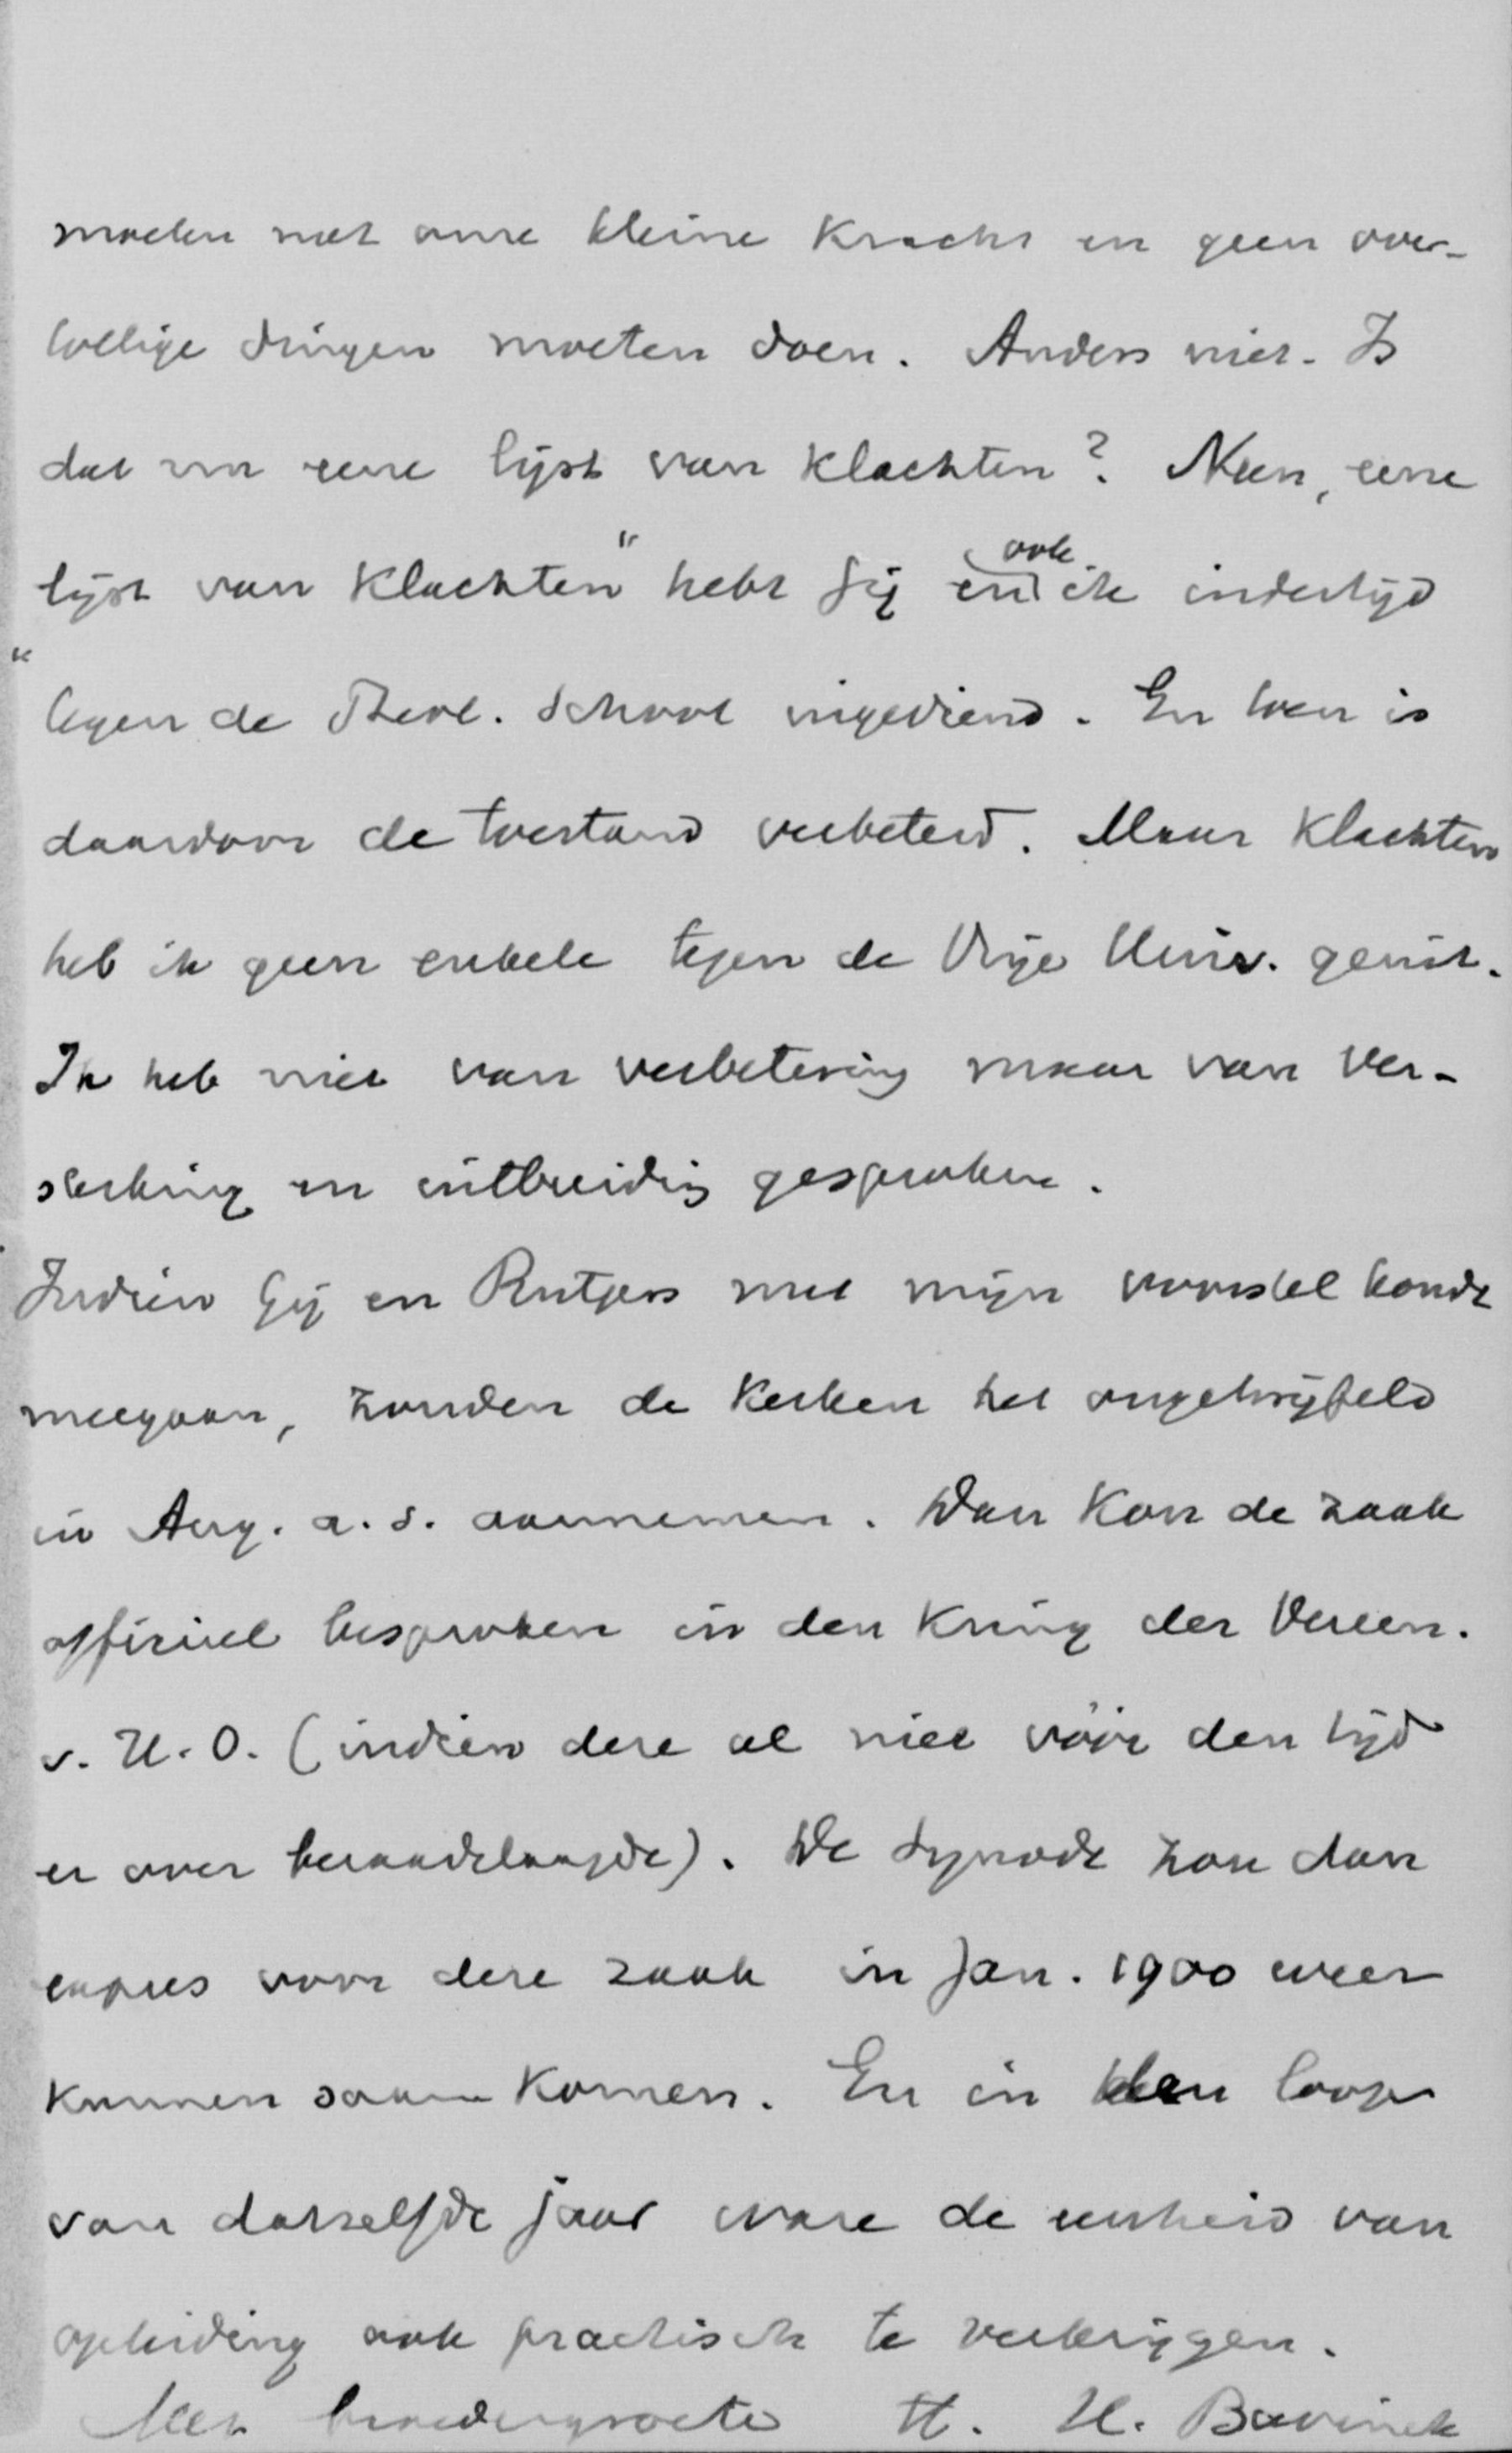 moeten met onze kleine kracht en geen over-
tollige dingen moeten doen. Anders niet. Is
dat nu eene lijst van klachten? Neen, eene
lijst van klachten" hebt Gij en ook ik indertijd
"tegen de Theol. School ingediend. En toen is
daardoor de toestand verbeterd. Maar klachten
heb ik geen enkele tegen de Vrije Univ. geuit.
Ik heb niet van verbetering maar van ver-
sterking en uitbreiding gesproken.
Indien Gij en Rutgers met mijn voorstel kondt
meegaan, zouden de kerken het ongetwijfeld
in Aug. a. s. aannemen. Dan kon de zaak
officieel besproken in den kring der Vereen.
v. H. O. (indien deze al niet vóór den tijd
er over beraadslaagde). De Synode zou dan
expres voor deze zaak in Jan. 1900 weer
kunnen saam komen. En in den loop
van datzelfde jaar ware de eenheid van
opleiding ook practisch te verkrijgen.
Met broedergroete tt. H. Bavinck